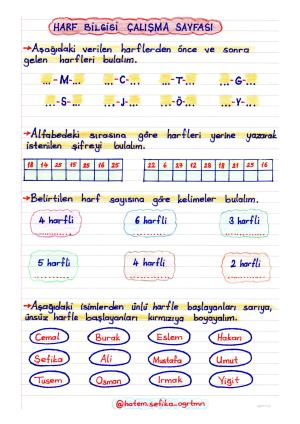 HARF BİLGİSİ ÇALIŞMA SAYFASI
→Aşağıdaki verilen harflerden önce ve sonra
gelen harfleri bulalım.
...-M-... ...-C-... ...-T-... ...-G-...
...-S-... ...-J-... ...-Ö-... ...-Y-...
→Alfabedeki sırasına göre harfleri yerine yazarak
istenilen şifreyi bulalım.
18 14 25 15 25 16 25 22 6 27 23 18 21 25 16
→Belirtilen harf sayısına göre kelimeler bulalım.
4 harfli 6 harfli 3 harfli
5 harfli 4 harfli 2 harfli
→Aşağıdaki isimlerden ünlü harfle başlayanları sarıya,
ünsüz harfle başlayanları kırmızıya boyayalım.
Cemal Burak Eslem Hakan
Şefika Ali Mustafa Umut
Tusem Osman Irmak Yiğit
@hatem.sefika_ogrtmn